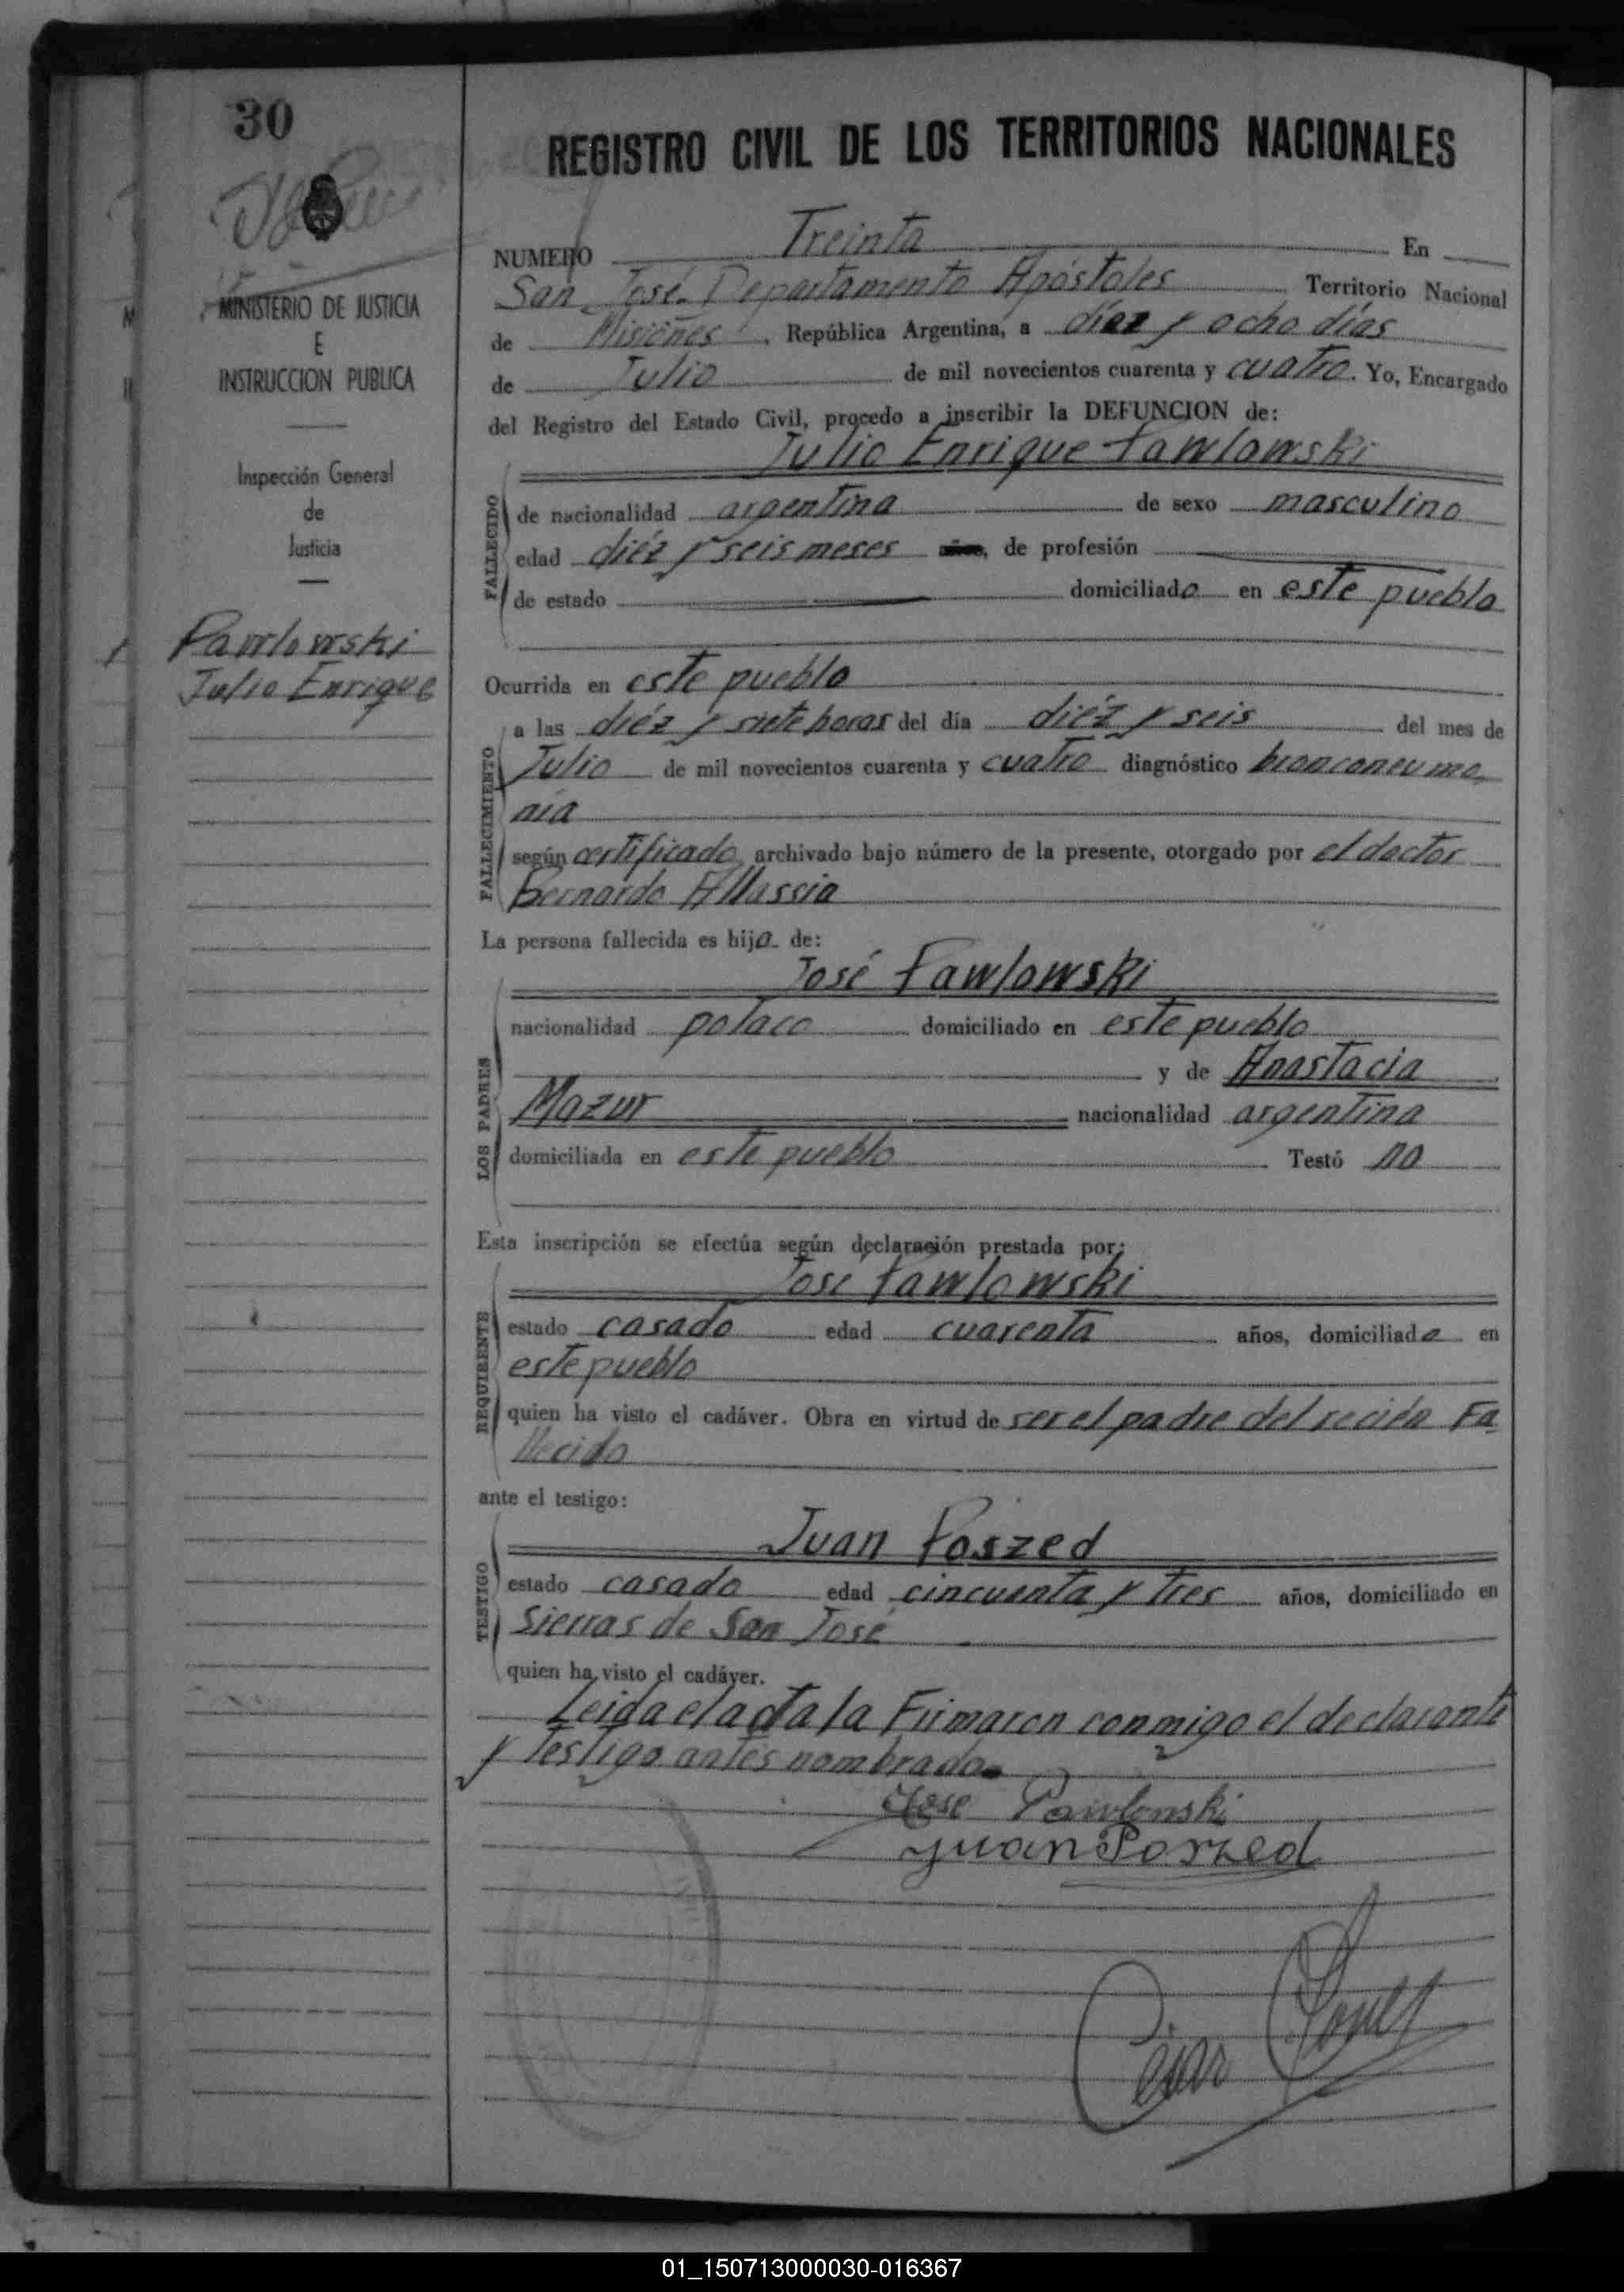 30
REGISTRO CIVIL DE LOS TERRITORIOS NACIONALES
MINISTERIO DE JUSTICIA
E
INSTRUCCION PUBLICA
Inspección General
de
Justicia
Pawlowski
Julio Enrique
NUMERO Treinta En
San José. Departamento Apóstoles Territorio Nacional
de Misiones, República Argentina, a diez y ocho días
de Julio de mil novecientos cuarenta y cuatro. Yo, Encargado
del Registro del Estado Civil, procedo a inscribir la DEFUNCION de:
Julio Enrique Pawlowski
FALLECIDO
de nacionalidad argentina de sexo masculino
edad diéz y seis meses años, de profesión
de estado domiciliado en este pueblo
Ocurrida en este pueblo
FALLECIMIENTO
a las diéz y siete horas del día diéz y seis del mes de
Julio de mil novecientos cuarenta y cuatro diagnóstico bronconeumo
nía
según certificado archivado bajo número de la presente, otorgado por el doctor
Bernardo
La persona fallecida es hijo de:
José Pawlowski
LOS PADRES
nacionalidad polaco domiciliado en este pueblo
y de Anastacia
Mazur nacionalidad argentina
domiciliada en este pueblo Testó no
Esta inscripción se efectúa según declaración prestada por:
José Pawlowski
REQUIRENTE
estado casado edad cuarenta años, domiciliado en
este pueblo
quien ha visto el cadáver. Obra en virtud de ser el padre del recién Fa
llecido
ante el testigo:
Juan Poszed
TESTIGO
estado casado edad cincuenta y tres años, domiciliado en
Sierras de San José
quien ha visto el cadáver.
Leida el acta la Firmaron conmigo el declarante
y testigo antes nombrado
Jose Pawlowski
Juan Poszed
01_150713000030-016367